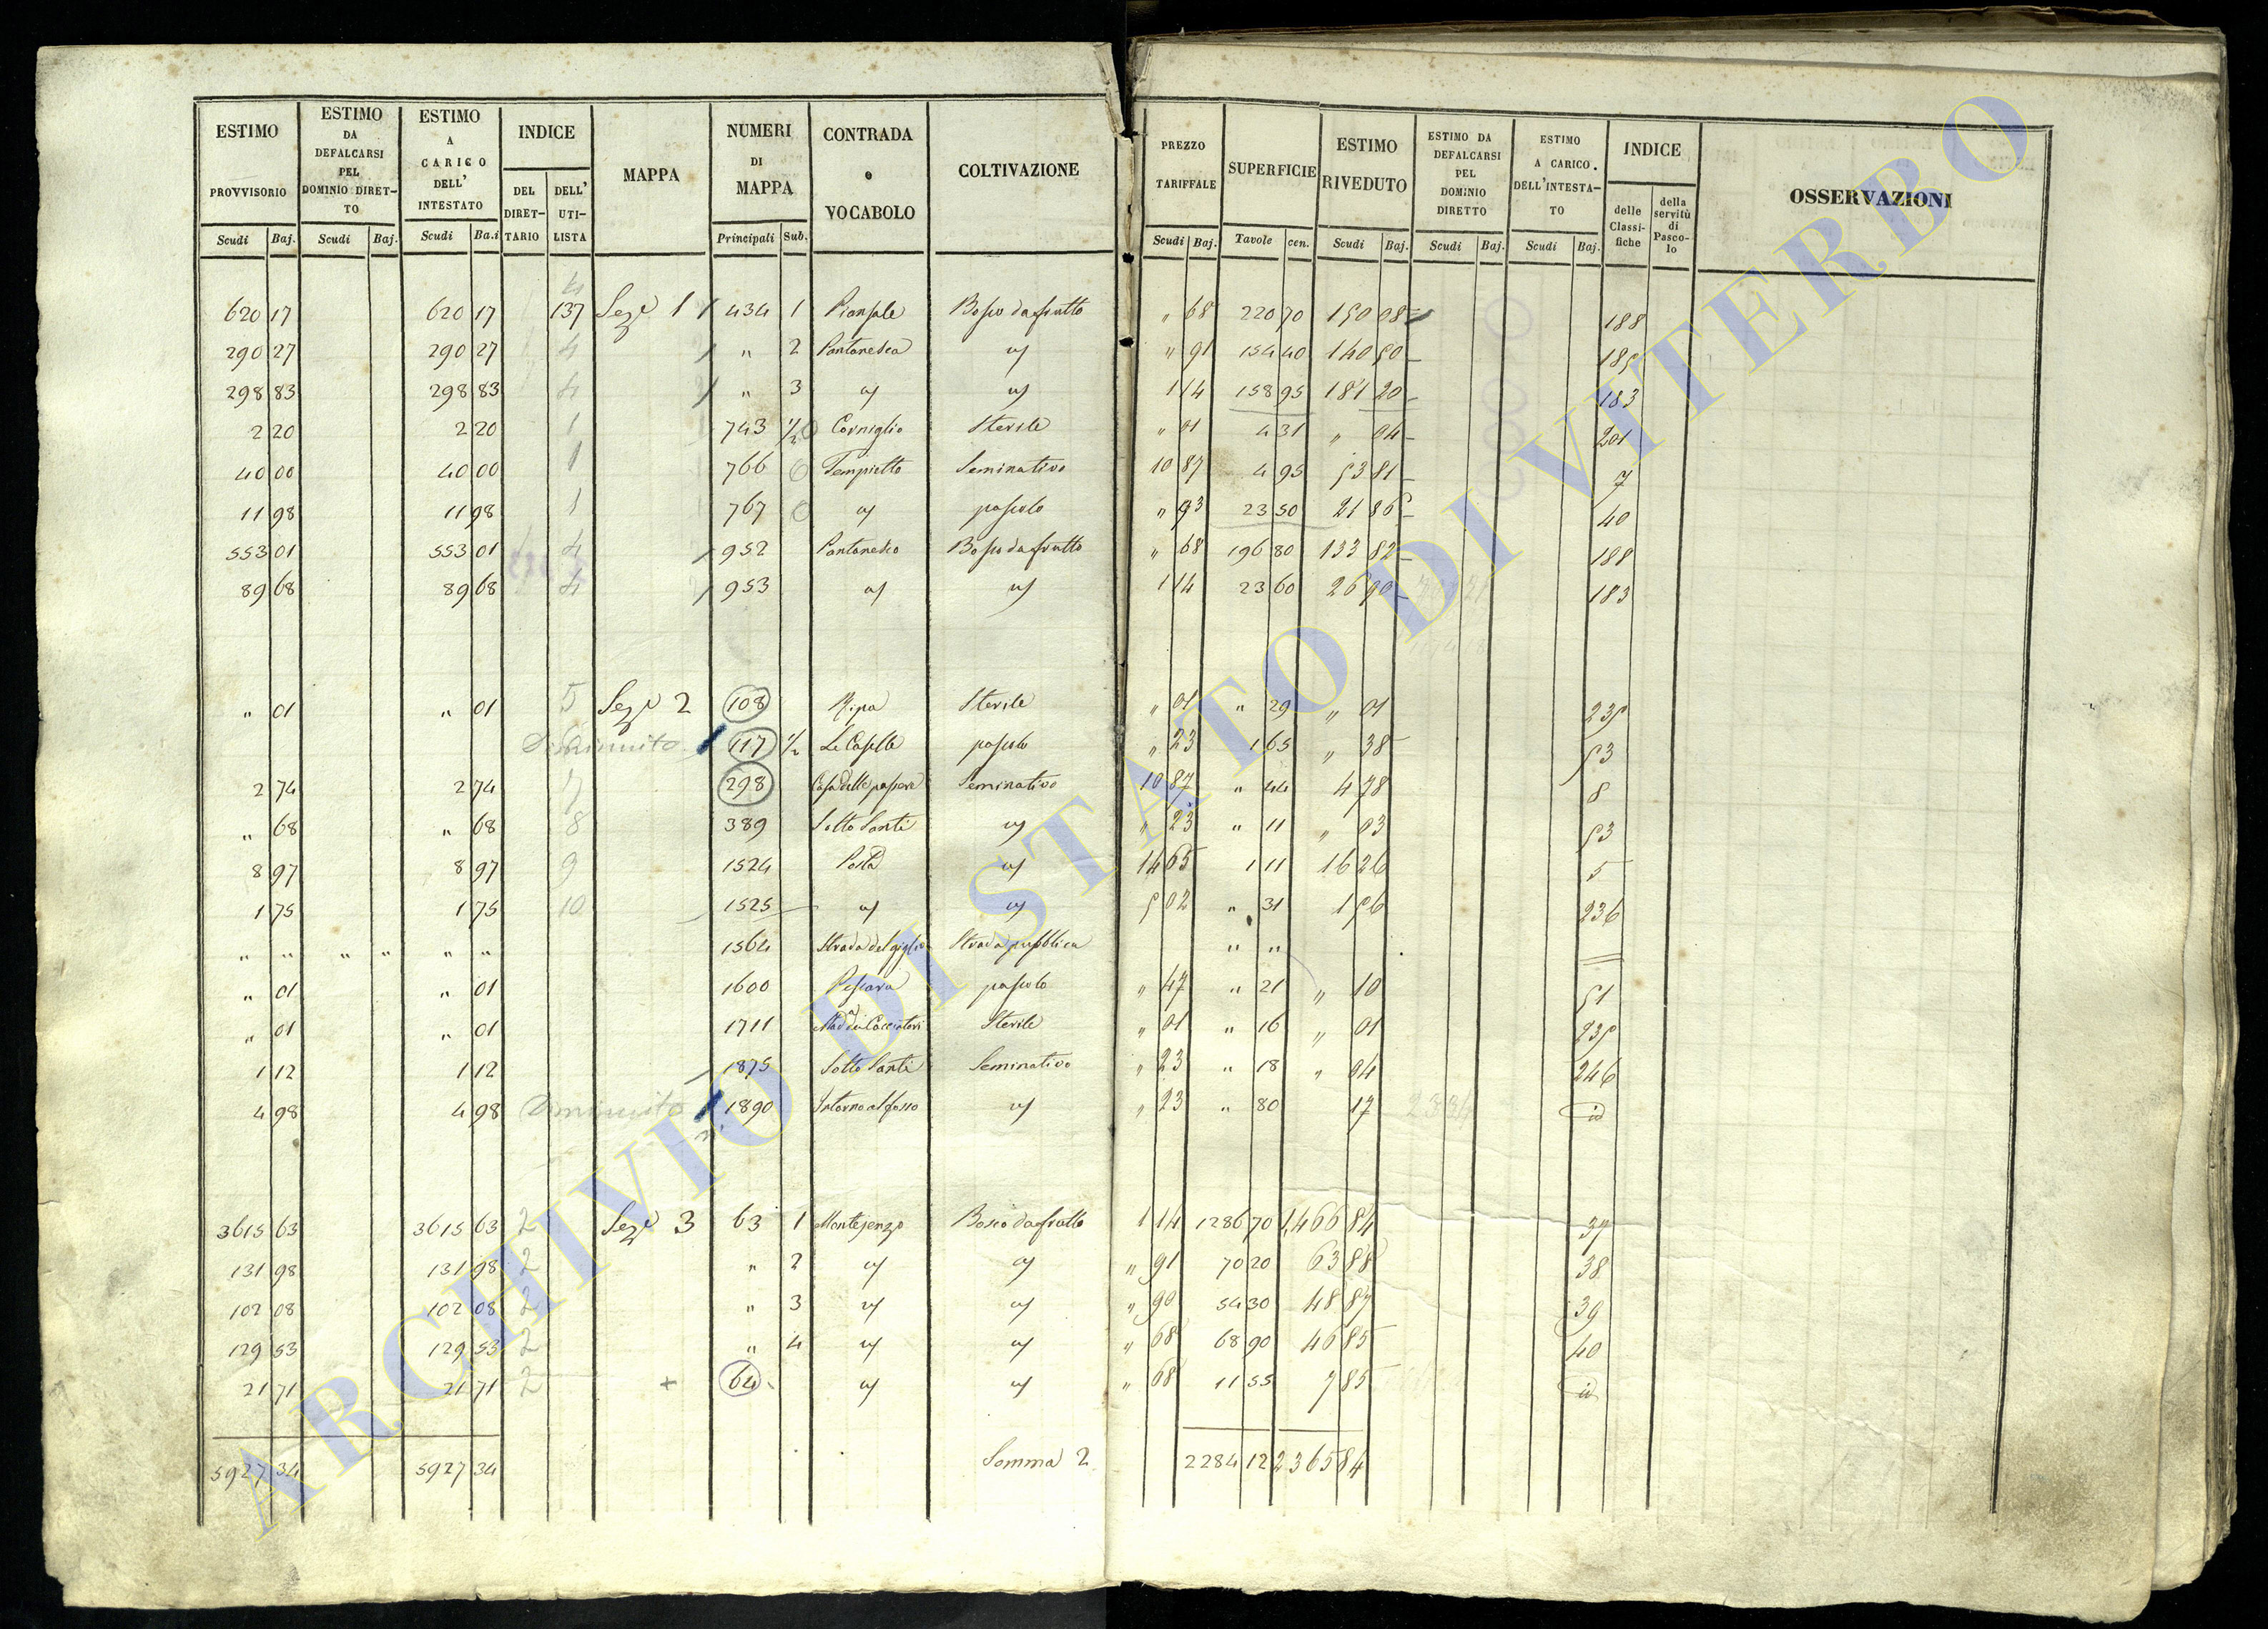 ESTIMO PROVVISORIO Scudi Baj.
ESTIMO DA DEFALCARSI PEL DOMINIO DIRETTO Scudi Baj.
ESTIMO A CARICO DELL' INTESTATO Scudi Ba.i
INDICE DEL DIRETTARIO DELL' UTILISTA
MAPPA
NUMERI DI MAPPA Principali Sub.
CONTRADA o VOCABOLO
COLTIVAZIONE
PREZZO TARIFFALE Scudi Baj.
SUPERFICIE Tavole cen.
ESTIMO RIVEDUTO Scudi Baj.
ESTIMO DA DEFALCARSI PEL DOMINIO DIRETTO Scudi Baj.
ESTIMO A CARICO DELL'INTESTATO Scudi Baj.
INDICE delle Classifiche della servitù di Pascolo
OSSERVAZIONI
620 17 620 17 4 137 Sez.e 1 434 1 Piansale Bosco da frutto " 68 220 70 150 08 188
290 27 290 27 4 " 2 Pantanesca " 91 154 40 140 50 185
298 83 298 83 4 " 3 1 14 158 95 181 20 183
2 20 2 20 1 743 1/2 Corniglio Sterile " 01 4 31 " 04 201
40 00 40 00 1 766 Tempietto Seminativo 10 87 4 95 53 81 7
11 98 11 98 1 767 pascolo " 93 23 50 21 86 40
553 01 553 01 4 952 Pantanesco Bosco da frutto " 68 196 80 133 82 188
89 68 89 68 4 953 1 14 23 60 26 90 183
" 01 " 01 5 Sez.e 2 108 Ripa Sterile " 01 " 29 " 01 235
Diminuito 117 1/2 Le Caselle pascolo " 23 1 65 " 38 53
2 74 2 74 7 298 Casa delle passere Seminativo 10 87 " 44 4 78 8
" 68 " 68 8 389 Sotto Santi " 23 " 11 " 03 53
8 97 8 97 9 1524 Posta 14 65 1 11 16 26 5
1 75 1 75 10 1525 5 02 " 31 1 56 236
" " " " " " 1564 Strada del giglio Strada pubblica " "
" 01 " 01 1600 Pescara pascolo " 47 " 21 " 10 51
" 01 " 01 1711 Mad.a dei Cacciatori Sterile " 01 " 16 " 01 235
1 12 1 12 1875 Sotto Santi Seminativo " 23 " 18 " 04 246
4 98 4 98 Diminuito 1890 Intorno al fosso " 23 " 80 17 id
3615 63 3615 63 2 Sez.e 3 63 1 Montejenzo Bosco da frutto 1 14 1286 70 1,466 84 37
131 98 131 98 2 " 2 " 91 70 20 63 88 38
102 08 102 08 2 " 3 " 90 54 30 48 87 39
129 53 129 53 2 " 4 " 68 68 90 46 85 40
21 71 21 71 2 + 64 " 68 11 55 7 85 id
5927 34 5927 34 Somma 2 2284 12 2365 84
ARCHIVIO DI STATO DI VITERBO